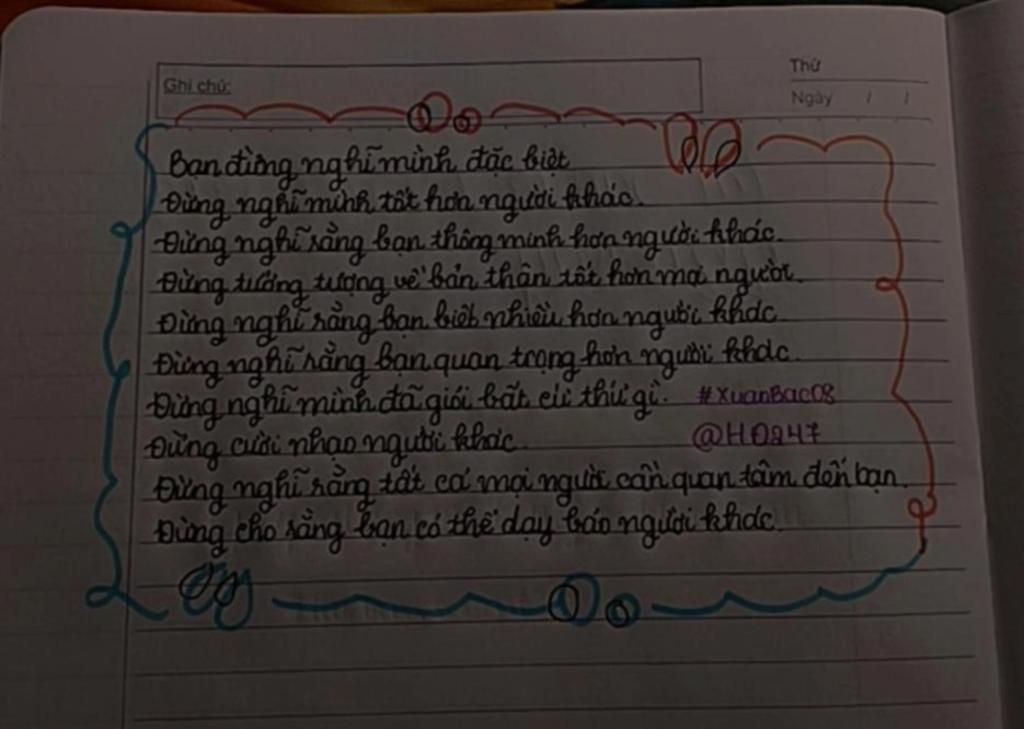 Ghi chú:
Thứ
Ngày / /
Bạn đừng nghĩ mình đặc biệt
Đừng nghĩ mình tốt hơn người khác.
Đừng nghĩ rằng bạn thông minh hơn người khác.
Đừng tưởng tượng về bản thân tốt hơn mọi người.
Đừng nghĩ rằng bạn biết nhiều hơn người khác
Đừng nghĩ rằng bạn quan trọng hơn người khác.
Đừng nghĩ mình đã giỏi bất cứ thứ gì. #XuanBac08
Đừng cười nhạo người khác. @HD247
Đừng nghĩ rằng tất cả mọi người cần quan tâm đến bạn.
Đừng cho rằng bạn có thể dạy bảo người khác.